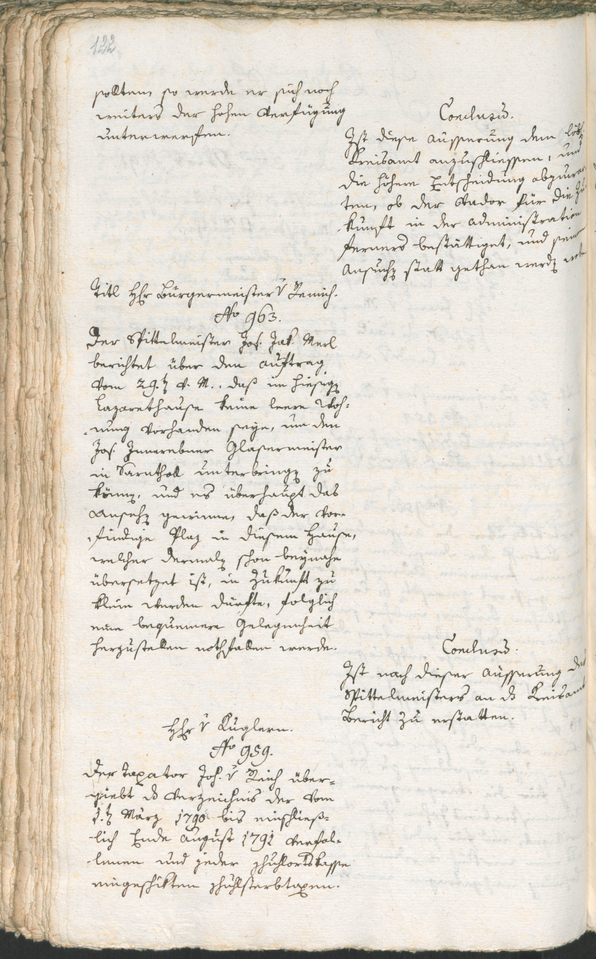 122.
solltem, so werde er sich noch
weiters der hohen Verfügung
unterwerfen.
Conclusum.
Ist diese Äusserung dem löbl.
Kreisamt anzuschliessen, und
die höhere Entscheidung abzuwar-
ten, ob der Vador für die Zu-
kunft in der Administration
ferners bestättiget, und seinem
Ansuchen statt gethan werden
Titl Hhr Bürgermeister v
No 963.
Der Spittelmeister Jos. Jak. Merl
berichtet über den Auftrag
vom 29.t v. M., daß im hiesigen
Lazarethause keine leere Woh-
nung vorhanden seye, um den
Jos. Innerebner Glasermeister
in Sarnthal unterbringen zu
können, und es überhaupt das
Ansehen gewinne, daß der vor-
findige Plaz in diesem Hause,
welcher dermalen schon beynahe
übersetzet ist, in Zukunft zu
klein werden dürfte, folglich
eine bequemere Gelegenheit
herzustellen nothfallen werde.
Conclusum.
Ist nach dieser Äusserung des
Spittelmeisters an ds Kreisamt
Bericht zu erstatten.
Hhr v Kuglern.
No 959.
Der Taxator Joh. v Reich über-
giebt ds Verzeichnis der vom
1.t März 1790 bis einschließ-
lich Ende August 1791 verfal-
lenen und jeder
eingeschikten